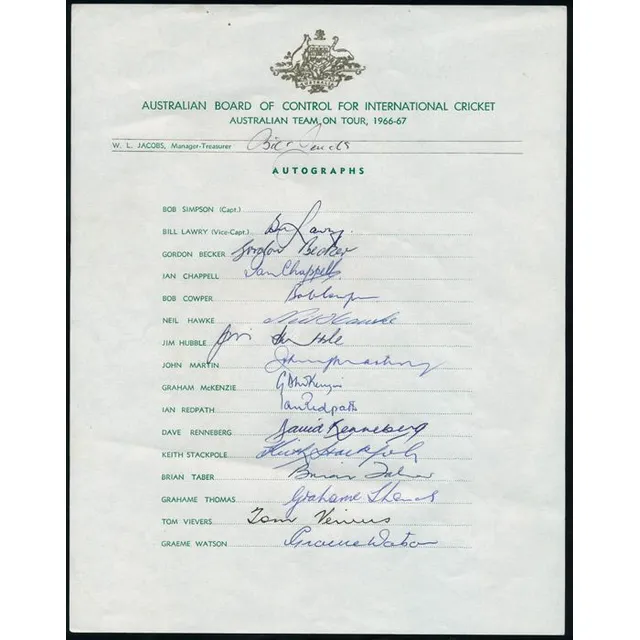 AUSTRALIA
AUSTRALIAN BOARD OF CONTROL FOR INTERNATIONAL CRICKET
AUSTRALIAN TEAM ON TOUR, 1966-67
W. L. JACOBS, Manager-Treasurer Bill Jacobs
AUTOGRAPHS
BOB SIMPSON (Capt.)
BILL LAWRY (Vice-Capt.) Bill Lawry
GORDON BECKER Gordon Becker
IAN CHAPPELL Ian Chappell
BOB COWPER Bob Cowper
NEIL HAWKE Neil Hawke
JIM HUBBLE Jim Hubble
JOHN MARTIN John Martin
GRAHAM McKENZIE G McKenzie
IAN REDPATH Ian Redpath
DAVE RENNEBERG David Renneberg
KEITH STACKPOLE Keith Stackpole
BRIAN TABER Brian Taber
GRAHAME THOMAS Grahame Thomas
TOM VIEVERS Tom Veivers
GRAEME WATSON Graeme Watson